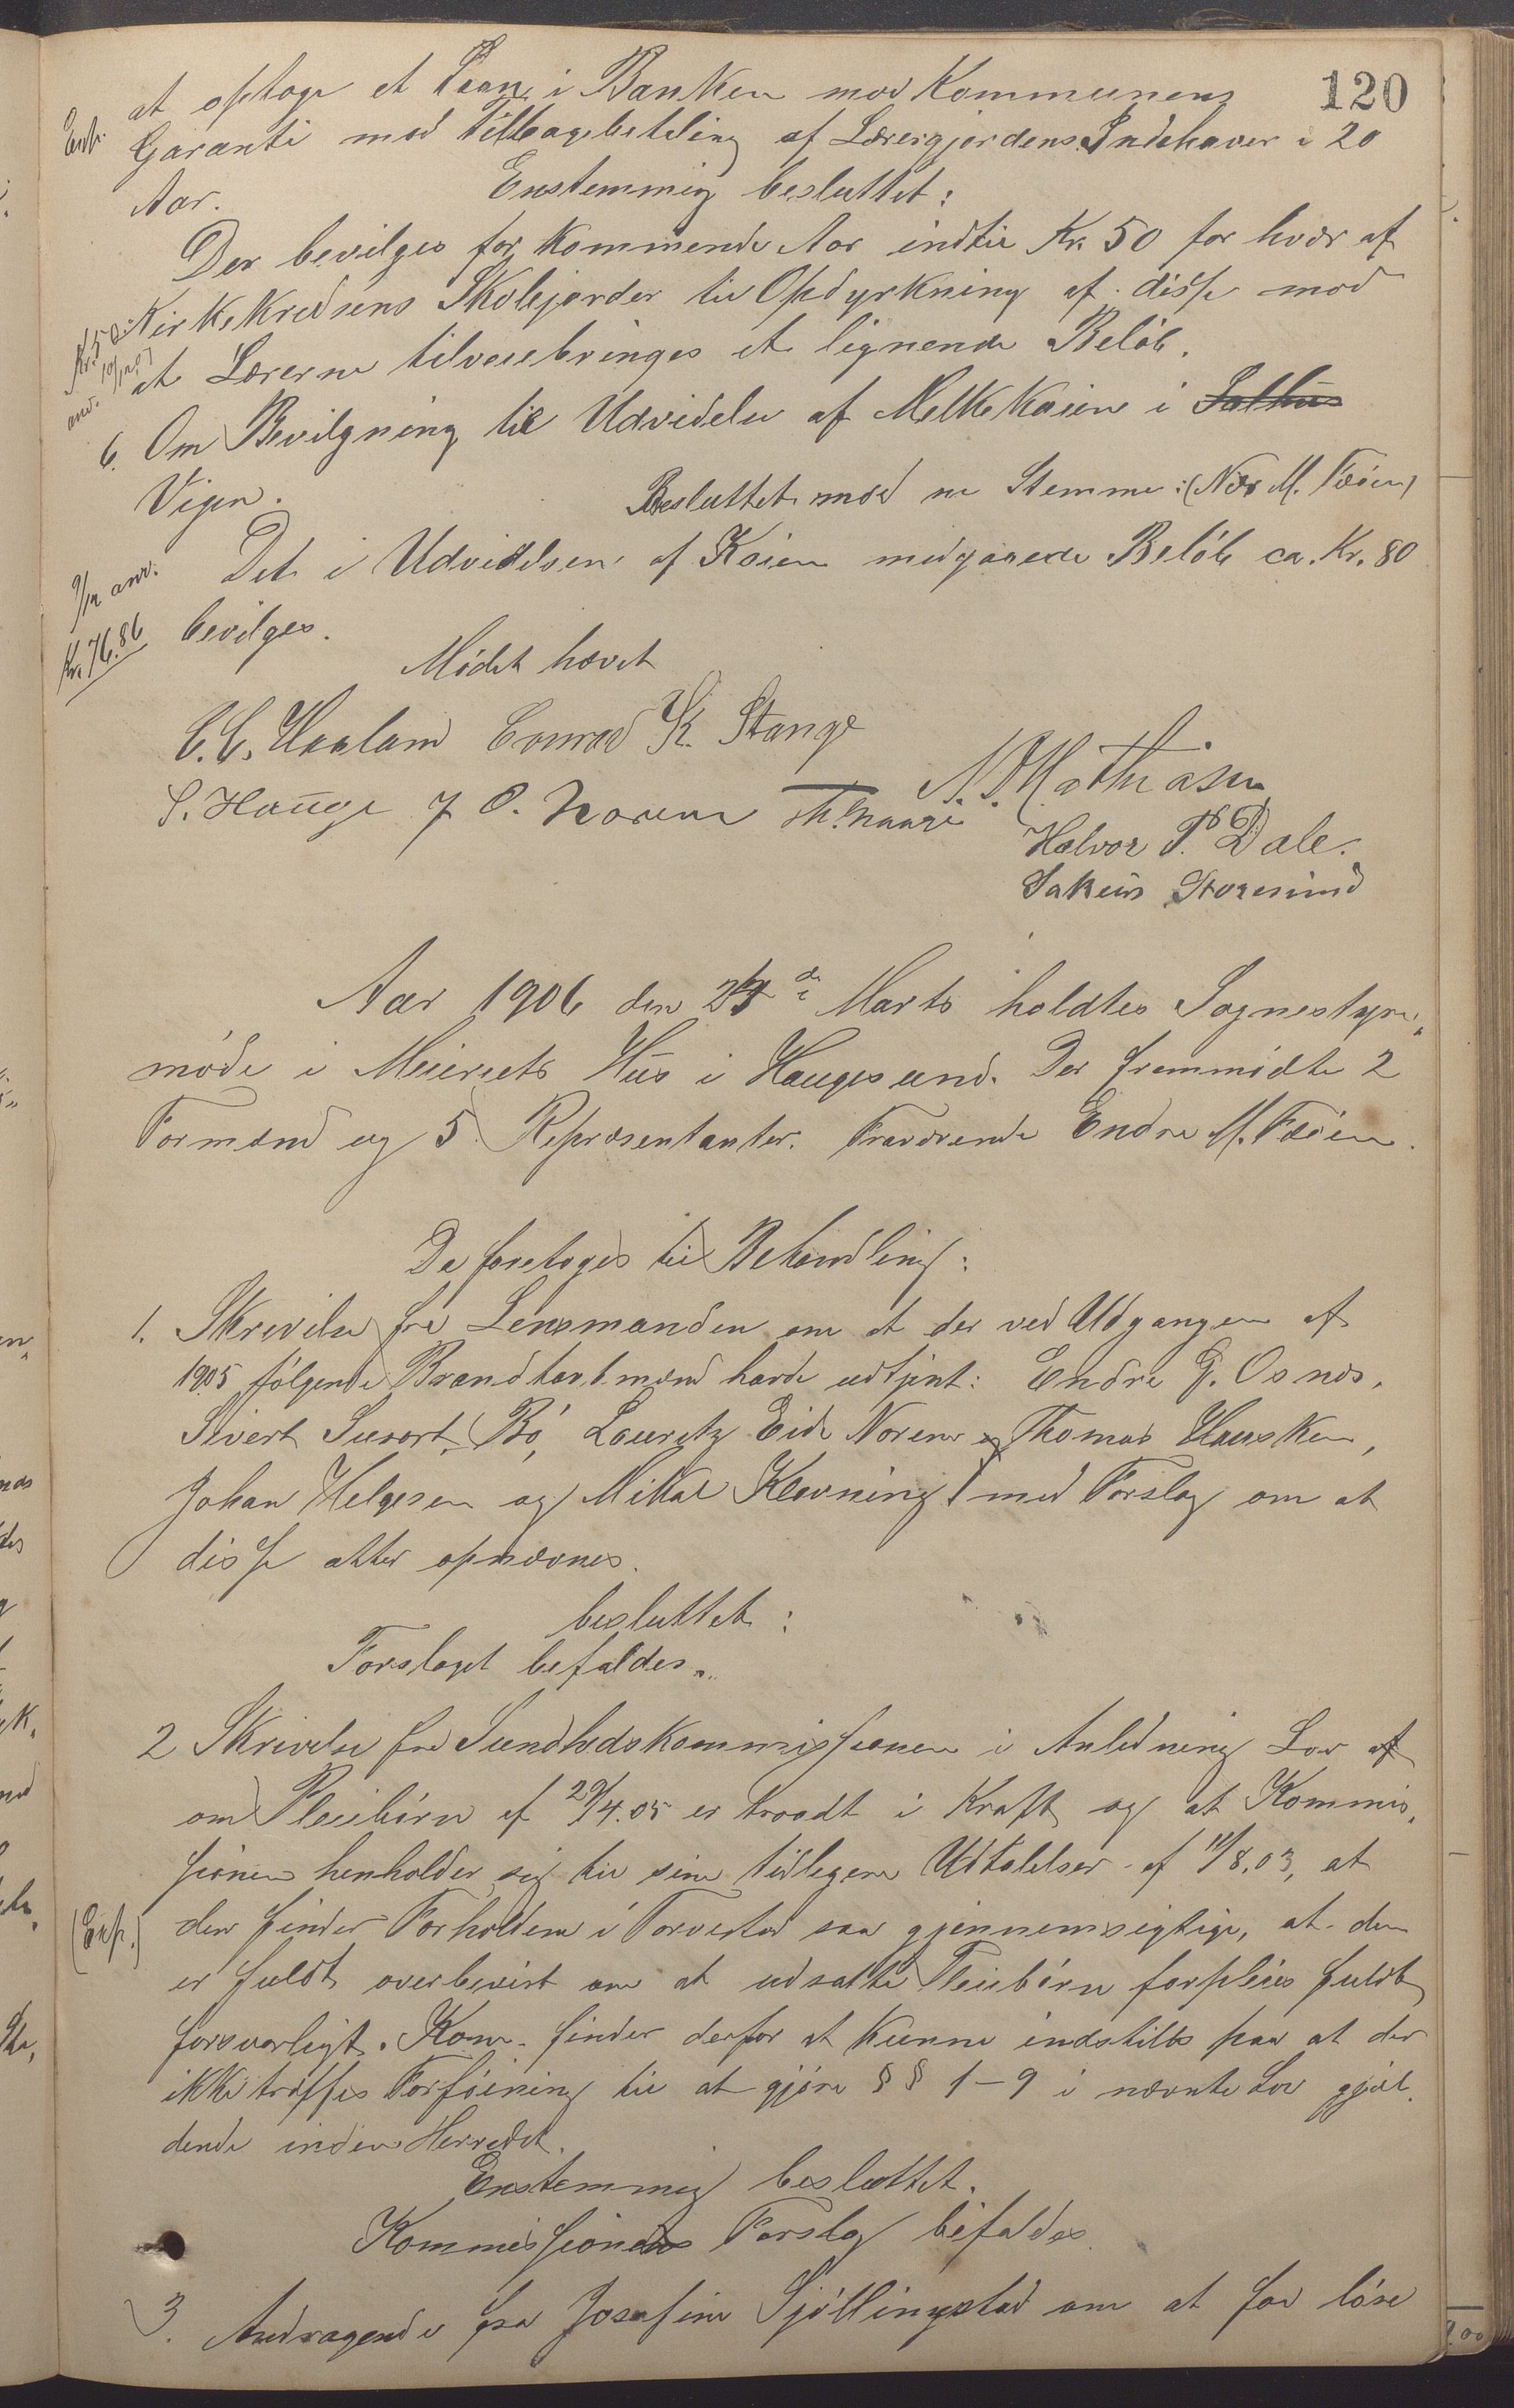 120
at optage et Laan i Banken mod Kommunens
Garanti mod Tilbagebetaling af Lærergjordens Indehaver i 20
Aar.
Enstemmig besluttet:
Der bevilges for Kommende Aar indtil Kr. 50 for hver af
Kirkekredsens Skolejorder til Opdyrkning af disse mod
at Lærerne tilveiebringes et lignende Beløb.
Kr. 50
anv.
6. Om Bevilgning til Udvidelse af Melkekaien i Salhus
Vigen.
Besluttet mod en Stemme: (Næs M. Fæøen)
Det i Udvidelsen af Kaien medgaaede Beløb ca. Kr. 80
bevilges.
9/12 anv.
Kr. 76.86
Mödet hævet
C. C. Haaland Conrad K. Stange
N. Mathiasen
S. Hauge J O. Noreum Th. Haage
Halvor P. Dale.
Sakeus Storesund
Aar 1906 den 24de Marts holdtes Sognestyre„
möde i Meieriets Hus i Haugesund. Der fremmödte 2
Formænd og 5 Repræsentanter. Fraværende Endre M. Fæøen.
Da foretoges til Behandling:
1. Skrivelse fra Lensmanden om at der ved Udgangen af
1905 følgende Brandtaxtmænd havde udtjent: Endre G. Osnes,
Sivert Susort, Bö, Lauritz Eide Norem og Thomas Hausken,
Johan Helgesen og Mikal Klovning med Forslag om at
disse atter opnævnes.
besluttet:
Forslaget bifaldes.
2 Skrivelse fra Sundhedskommissionen i Anledning Lov af
om Pleiebörn af 29/4.05 er traadt i Kraft og at Kommis„
sionen henholder sig til sine tidligere Udtalelser af 11/8.03, at
den finder Forholdene i Torvestad saa gjennemsigtige, at den
(Exp.)
er fuldt overbevist om at udsatte Pleiebörn forpleies fuldt
forsvarligt. Kom. finder derfor at kunne indstille paa at der
ikke træffes Forföining til at gjöre §§ 1-9 i nævnte Lov gjæl„
dende inden Herredet.
Enstemmig besluttet.
Kommissionens Forslag bifaldes.
3. Andragende fra Josefine Sjöllingstad om at faa löse